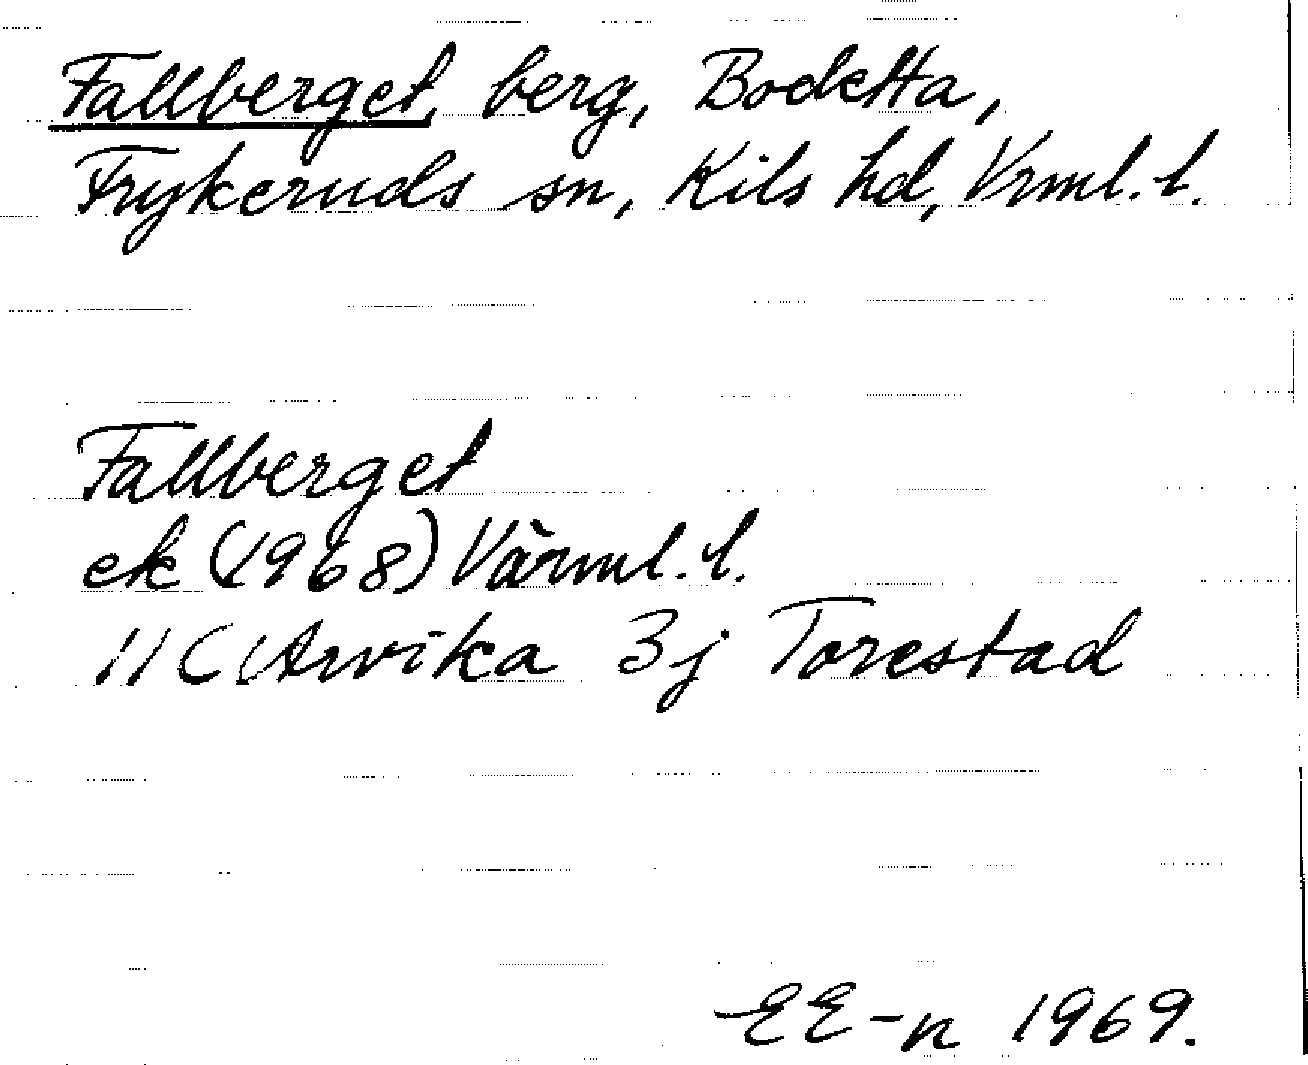 Fallberget, berg, Bocketta,
Frykeruds sn, Kils hd, Vrml. l.
Fallberget
ek (1968) Värml. l.
11 C Arvika 3j Torestad
EE-n 1969.